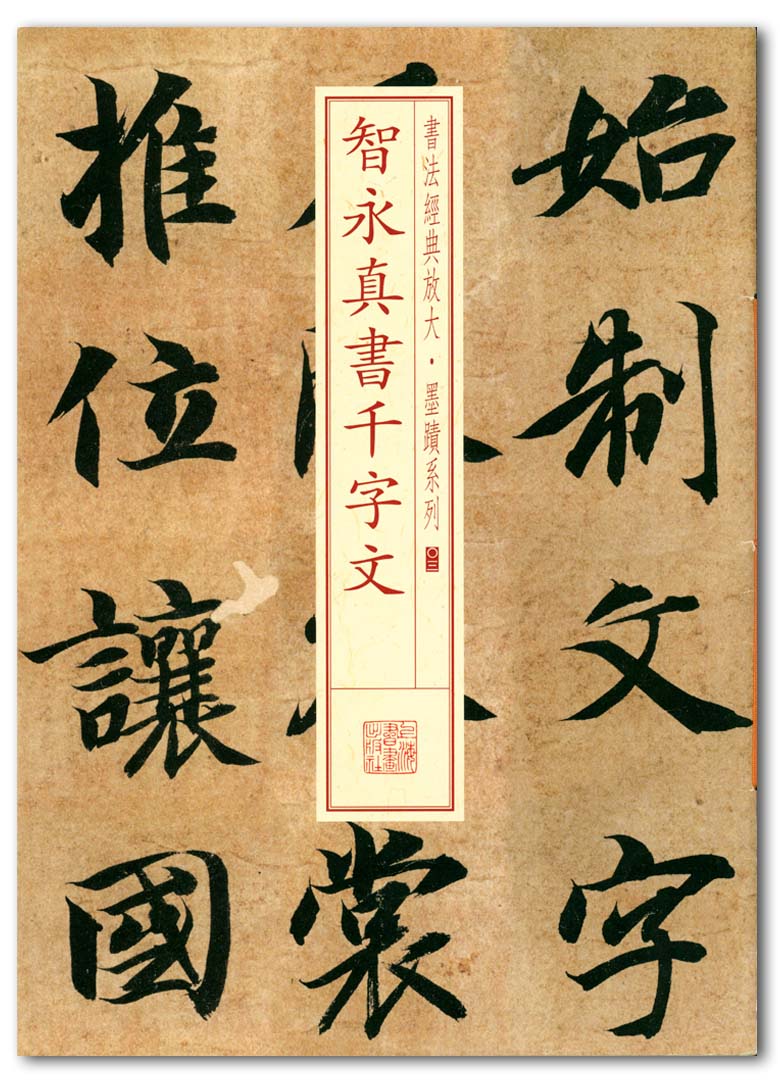 始制文字
裳
推位讓國
書法經典放大·墨蹟系列 〇三
智永真書千字文
上海書畫出版社